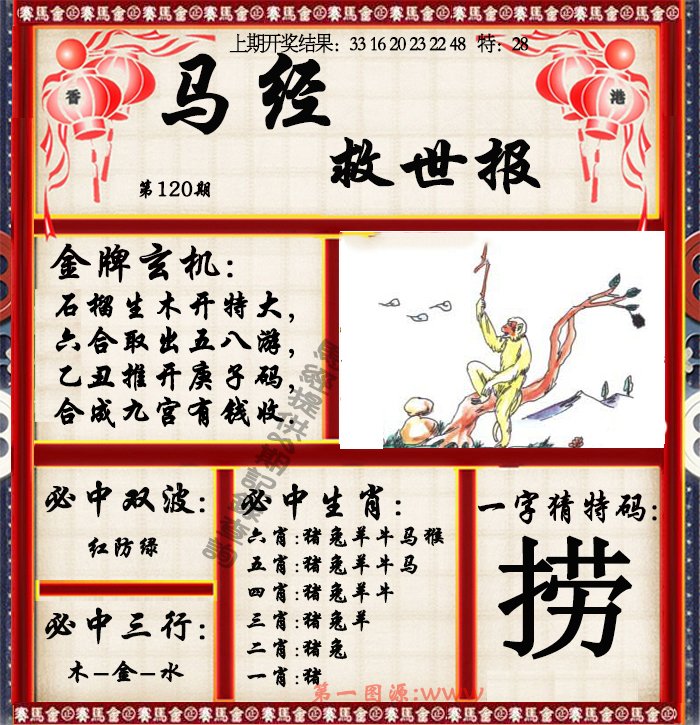 賽馬會 賽馬會 賽馬會 賽馬會 賽馬會 賽馬會 賽馬會
上期开奖结果：33 16 20 23 22 48 特：28
香
港
马经
救世报
第120期
金牌玄机：
石榴生木开特大，
六合取出五八游，
乙丑推开庚子码，
合成九宫有钱收.
必中双波：
红防绿
必中三行：
木-金-水
必中生肖：
六肖:猪兔羊牛马猴
五肖:猪兔羊牛马
四肖:猪兔羊牛
三肖:猪兔羊
二肖:猪兔
一肖:猪
一字猜特码：
捞
第一图源:www